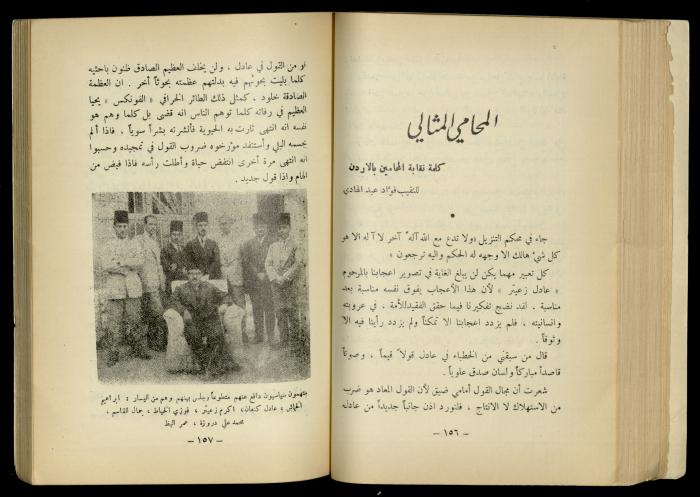 المحامي المثالي
كلمة نقابة المحامين بالاردن
للنقيب فؤاد عبد الهادي
جاء في محكم التنزيل «ولا تدع مع الله آلهً آخر لا آله الا هو
كل شيءٍ هالك الا وجهه له الحكم واليه ترجعون »
كل تعبير مهما يكن لن يبلغ الغاية في تصوير اعجابنا بالمرحوم
« عادل زعيتر » لأن هذا الأعجاب يفوق نفسه مناسبة بعد
مناسبة . لقد نضج تفكيرنا فيما حقق الفقيد للأمة ، في عروبته
وانسانيته ، فلم يزدد اعجابنا الا تمكناً ولم يزدد رأينا فيه الا
وثوقاً .
قال من سبقني من الخطباء في عادل قولاً قيماً ، وصوتاً
قاصداً مباركاً ولسان صدق علوياً .
شعرت أن مجال القول أمامي ضيق لأن القول المعاد هو ضرب
من الاستهلاك لا الانتاج ، فلنورد اذن جانباً جديداً من عادل
— ١٥٦ —
او من القول في عادل ، ولن يخلف العظيم الصادق ظنون باحثيه
كلما بليت بحوثهم فيه بدلتهم عظمته بحوثاً أخر . ان العظمة
الصادقة خلود ، كمثلي ذلك الطائر الخرافي « الفونكس » يحيا
العظيم في رفاته كلما توهم الناس انه قضى بل كلما وهم هو
نفسه انه انتهى ثارت به الحيوية فأنشرته بشراً سوياً ، فاذا ألم
بجسمه البلي واستنفد مؤرخوه ضروب القول في تمجيده وحسبوا
انه انتهى مرة أخرى انتفض حياة وأطلت رأسه فاذا فيض من
الهام واذا قول جديد .
متهمون سياسيون دافع عنهم متطوعاً ويجلس بينهم وهم من اليسار : ابراهيم
عادل كنعان ، اكرم زعيتر ، فوزي الخياط ، جمال القاسم ،
محمد علي دروزة ، عمر
— ١٥٧ —